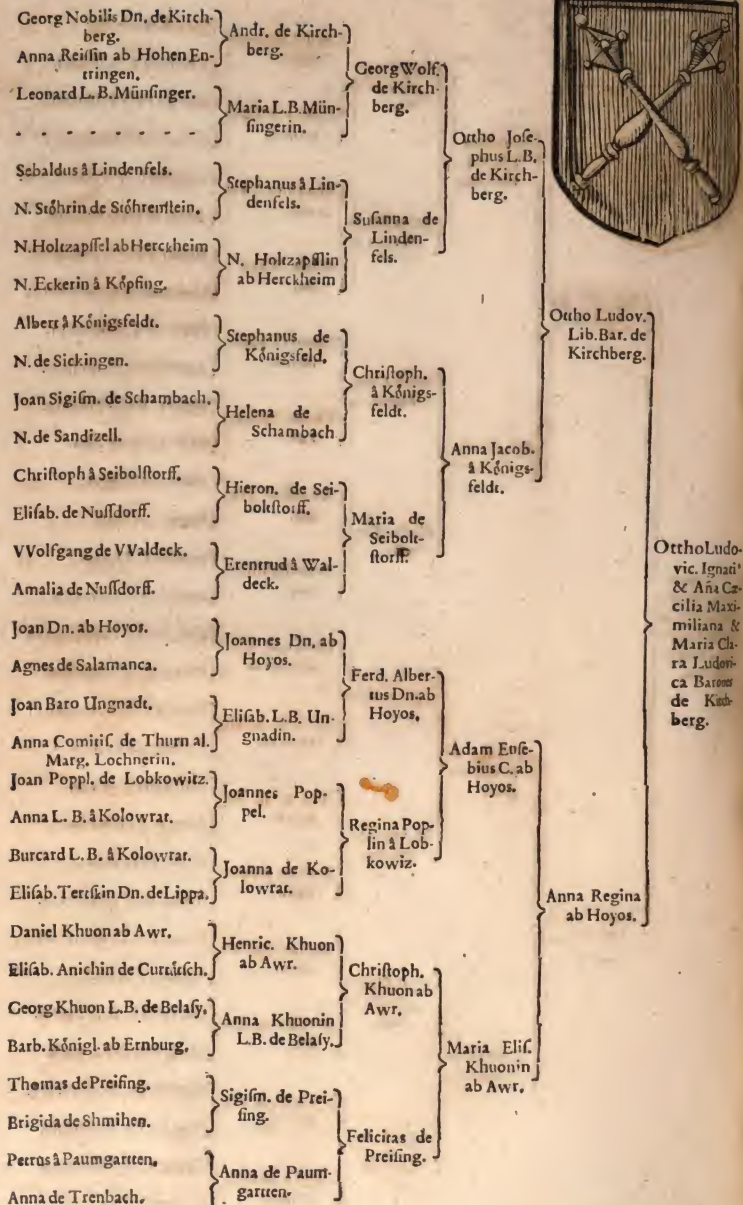 Georg Nobilis Dn. de Kirch-
berg.
Anna Reiſſin ab Hohen En-
tringen.
Leonard L. B. Münſinger.
. . . . . . . .
Sebaldus â Lindenfels.
N. Stöhrin de Stöhrenſtein.
N. Holtzapffel ab Herckheim
N. Eckerin â Köpfing.
Albert â Königsfeldt.
N. de Sickingen.
Joan Sigiſm. de Schambach.
N. de Sandizell.
Chriſtoph â Seibolſtorff.
Eliſab. de Nuſſdorff.
VVolfgang de VValdeck.
Amalia de Nuſſdorff.
Joan Dn. ab Hoyos.
Agnes de Salamanca.
Joan Baro Ungnadt.
Anna Comitiſ. de Thurn al.
Marg. Lochnerin.
Joan Poppl. de Lobkowitz.
Anna L. B. â Kolowrat.
Burcard L. B. â Kolowrat.
Eliſab. Tertſkin Dn. de Lippa.
Daniel Khuon ab Awr.
Eliſab. Anichin de
Georg Khuon L. B. de Belaſy.
Barb. Königl. ab Ernburg.
Thomas de Preiſing.
Brigida de Shmihen.
Petrus â Paumgartten.
Anna de Trenbach.
Andr. de Kirch-
berg.
Maria L. B. Mün-
ſingerin.
Stephanus â Lin-
denfels.
N. Holtzapflin
ab Herckheim
Stephanus de
Königsfeld.
Helena de
Schambach
Hieron. de Sei-
boltſtorff.
Erentrud â Wal-
deck.
Joannes Dn. ab
Hoyos.
Eliſab. L. B. Un-
gnadin.
Joannes Pop-
pel.
Joanna de Ko-
lowrat.
Henric. Khuon
ab Awr.
Anna Khuonin
L. B. de Belaſy.
Sigiſm. de Prei-
ſing.
Anna de Paum-
gartten.
Georg Wolf.
de Kirch-
berg.
Suſanna de
Linden-
fels.
Chriſtoph.
â Königs-
feldt.
Maria de
Seibolt-
ſtorff.
Ferd. Alber-
tus Dn. ab
Hoyos.
Regina Pop-
lin â Lob-
kowiz.
Chriſtoph.
Khuon ab
Awr.
Felicitas de
Preiſing.
Ottho Joſe-
phus L. B.
de Kirch-
berg.
Anna Jacob.
â Königs-
feldt.
Adam Euſe-
bius C. ab
Hoyos.
Maria Eliſ.
Khuonin
ab Awr.
Ottho Ludov.
Lib. Bar. de
Kirchberg.
Anna Regina
ab Hoyos.
Ottho Ludo-
vic. Ignati⁹
& Aña Cæ-
cilia Maxi-
miliana &
Maria Cla-
ra Ludovi-
ca Barones
de Kirch-
berg.